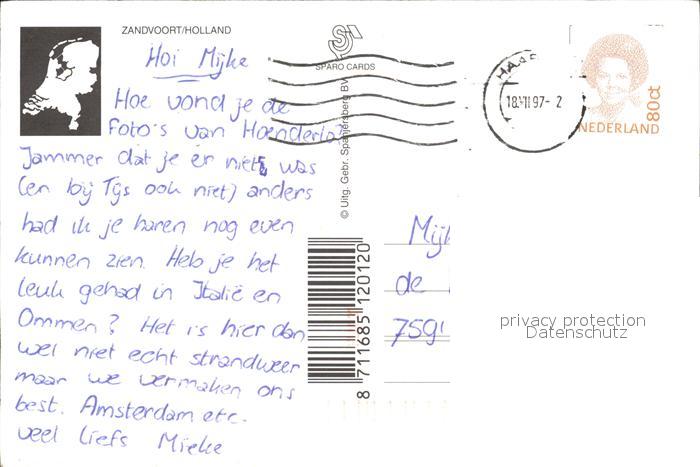 ZANDVOORT/HOLLAND
Hoi Mijke
Hoe vond je de
foto's van Hoenderlo?
Jammer dat je er niet was
(en bij Tijs ook niet) anders
had ik je haren nog even
kunnen zien. Heb je het
leuk gehad in Italië en
Ommen? Het is hier dan
wel niet echt strandweer
maar we vermaken ons
best. Amsterdam etc.
veel liefs Mieke
SPARO CARDS
© Uitg. Gebr. Spanjersberg BV
8 711685 120120
HAAR
18.VII.97- 2
80ct
NEDERLAND
Mijk
de
759
privacy protection
Datenschutz